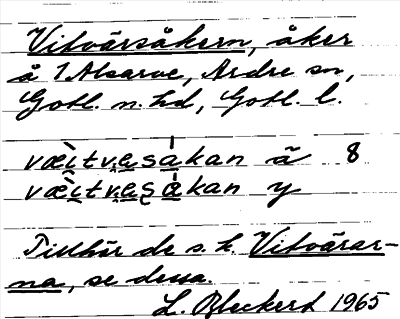 Vitvärsåkern, åker
å 1 Alsarve, Ardre sn,
Gotl. n. hd, Gotl. l.
væ̀itvęså̍kan ā 8
væ̀itvęså̍kan y
Tillhör de s. k. Vitvärar-
na, se dessa.
L. Bleckert 1965